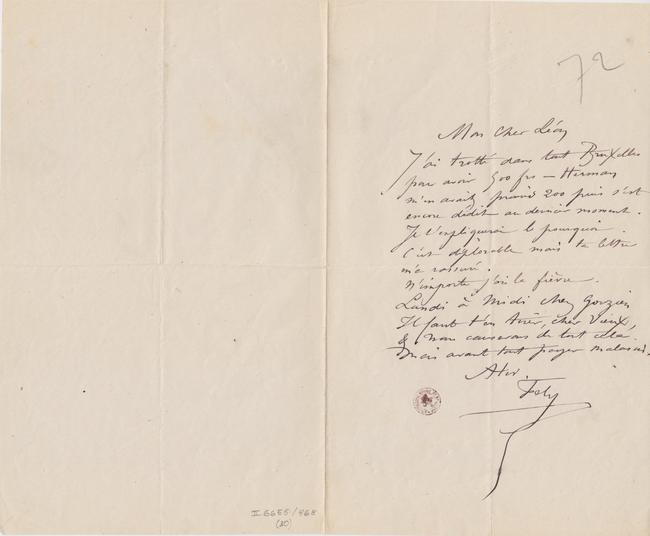 72
Mon Cher Léon
J'ai trotté dans tout Bruxelles
pour avoir 500 frs – Herman
m'en avait promis 200 puis s'est
encore dédit au dernier moment.
Je t'expliquerai le pourquoi.
C'est déplorable mais ta lettre
m'a rassuré.
N'importe j'ai la fièvre.
Lundi à Midi chez
Il faut t'en tirer, cher Vieux,
& nous causerons de tout cela.
Mais avant tout payer malassis.
A toi.
Fély
II 6655/468
(20)